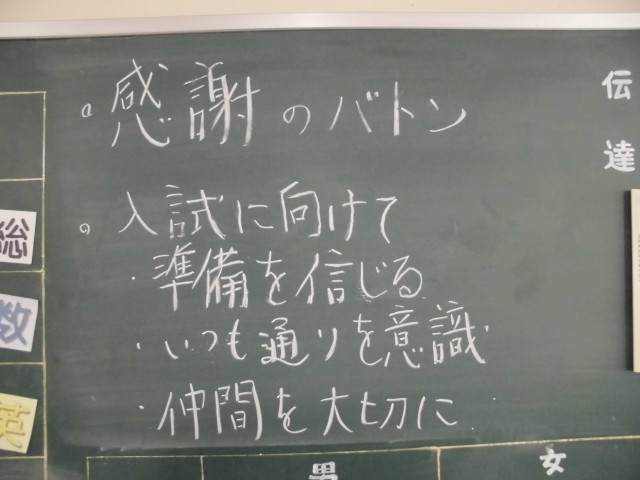 感謝のバトン
入試に向けて
・準備を信じる
・いつも通りを意識
・仲間を大切に
伝達
総
数
英
男
女